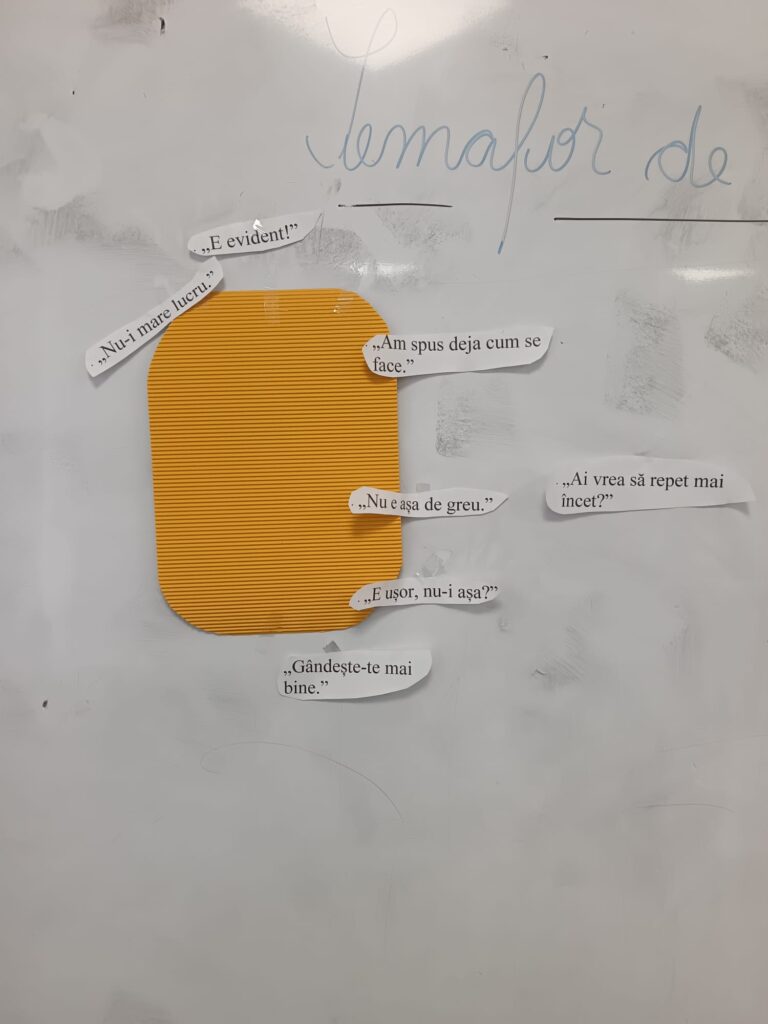 Semafor de
„E evident!”
„Nu-i mare lucru.”
„Am spus deja cum se
face.”
„Nu e așa de greu.”
„Ai vrea să repet mai
încet?”
„E ușor, nu-i așa?”
„Gândește-te mai
bine.”